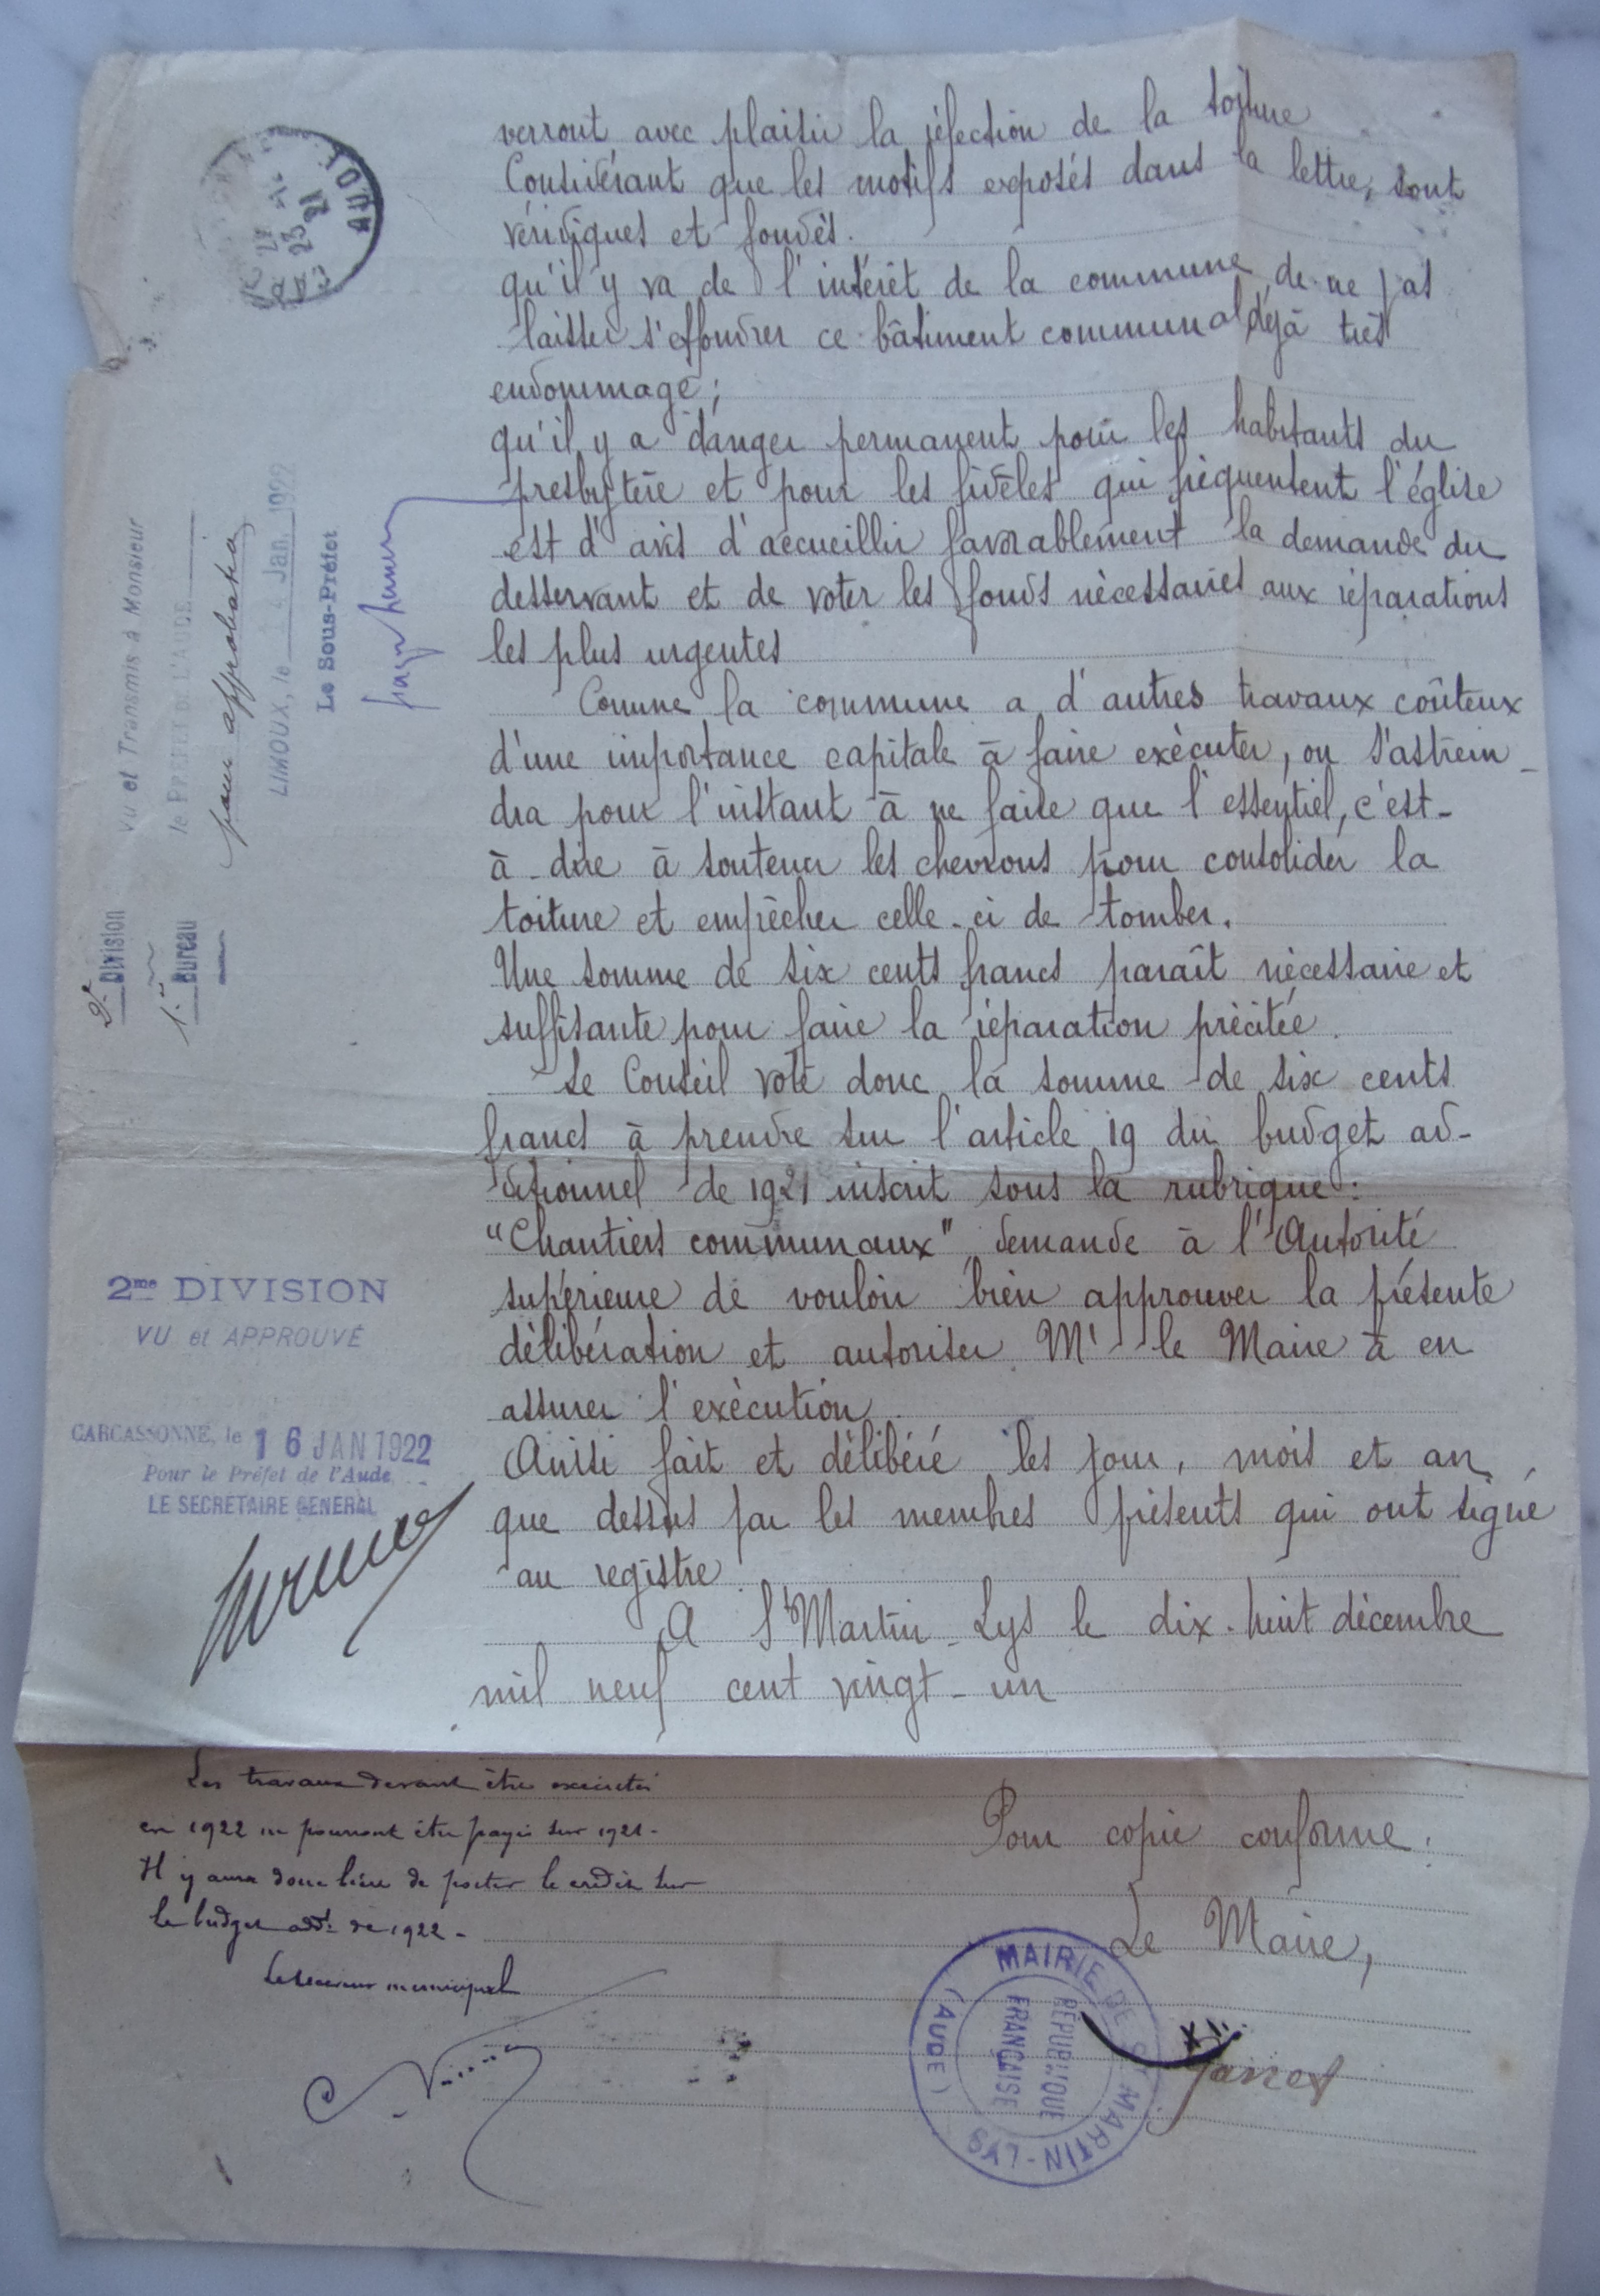 verront avec plaisir la réfection de la toiture
Considérant que les motifs exposés dans la lettre, sont
véridiques et fondés.
qu'il y va de l'intérêt de la commune de ne pas
laisser s'effondrer ce bâtiment communal déjà très
endommagé ;
qu'il y a danger permanent pour les habitants du
presbytère et pour les fidèles qui fréquentent l'église
est d'avis d'accueillir favorablement la demande du
desservant et de voter les fonds nécessaires aux réparations
les plus urgentes
Comme la commune a d'autres travaux coûteux
d'une importance capitale à faire exécuter, on s'astrein-
dra pour l'instant à ne faire que l'essentiel, c'est-
à-dire à soutenir les chevrons pour consolider la
toiture et empêcher celle-ci de tomber.
Une somme de six cents francs paraît nécessaire et
suffisante pour faire la réparation précitée.
Le Conseil vote donc la somme de six cents
francs à prendre sur l'article 19 du budget ad-
ditionnel de 1921 inscrit sous la rubrique :
"Chantiers communaux" demande à l'Autorité
supérieure de vouloir bien approuver la présente
délibération et autoriser Mr le Maire à en
assurer l'exécution.
Ainsi fait et délibéré les jour, mois et an
que dessus par les membres présents qui ont signé
au registre.
A St Martin-Lys le dix-huit décembre
mil neuf cent vingt-un
Pour copie conforme :
Le Maire,
MAIRIE DE ST MARTIN-LYS
(AUDE)
RÉPUBLIQUE
FRANÇAISE
AUDE
23
21
Vu et Transmis à Monsieur
le PRÉFET DE L'AUDE
pour approbation
LIMOUX, le 4 Jan. 1922
Le Sous-Préfet
2e Division
1er Bureau
2me DIVISION
VU et APPROUVÉ
CARCASSONNE, le 16 JAN 1922
Pour le Préfet de l'Aude
LE SECRÉTAIRE GENERAL
Les travaux devant être exécutés
en 1922 ne pourront être payés sur 1921.
Il y aura donc lieu de porter le crédit sur
le budget addl de 1922.
Le receveur municipal